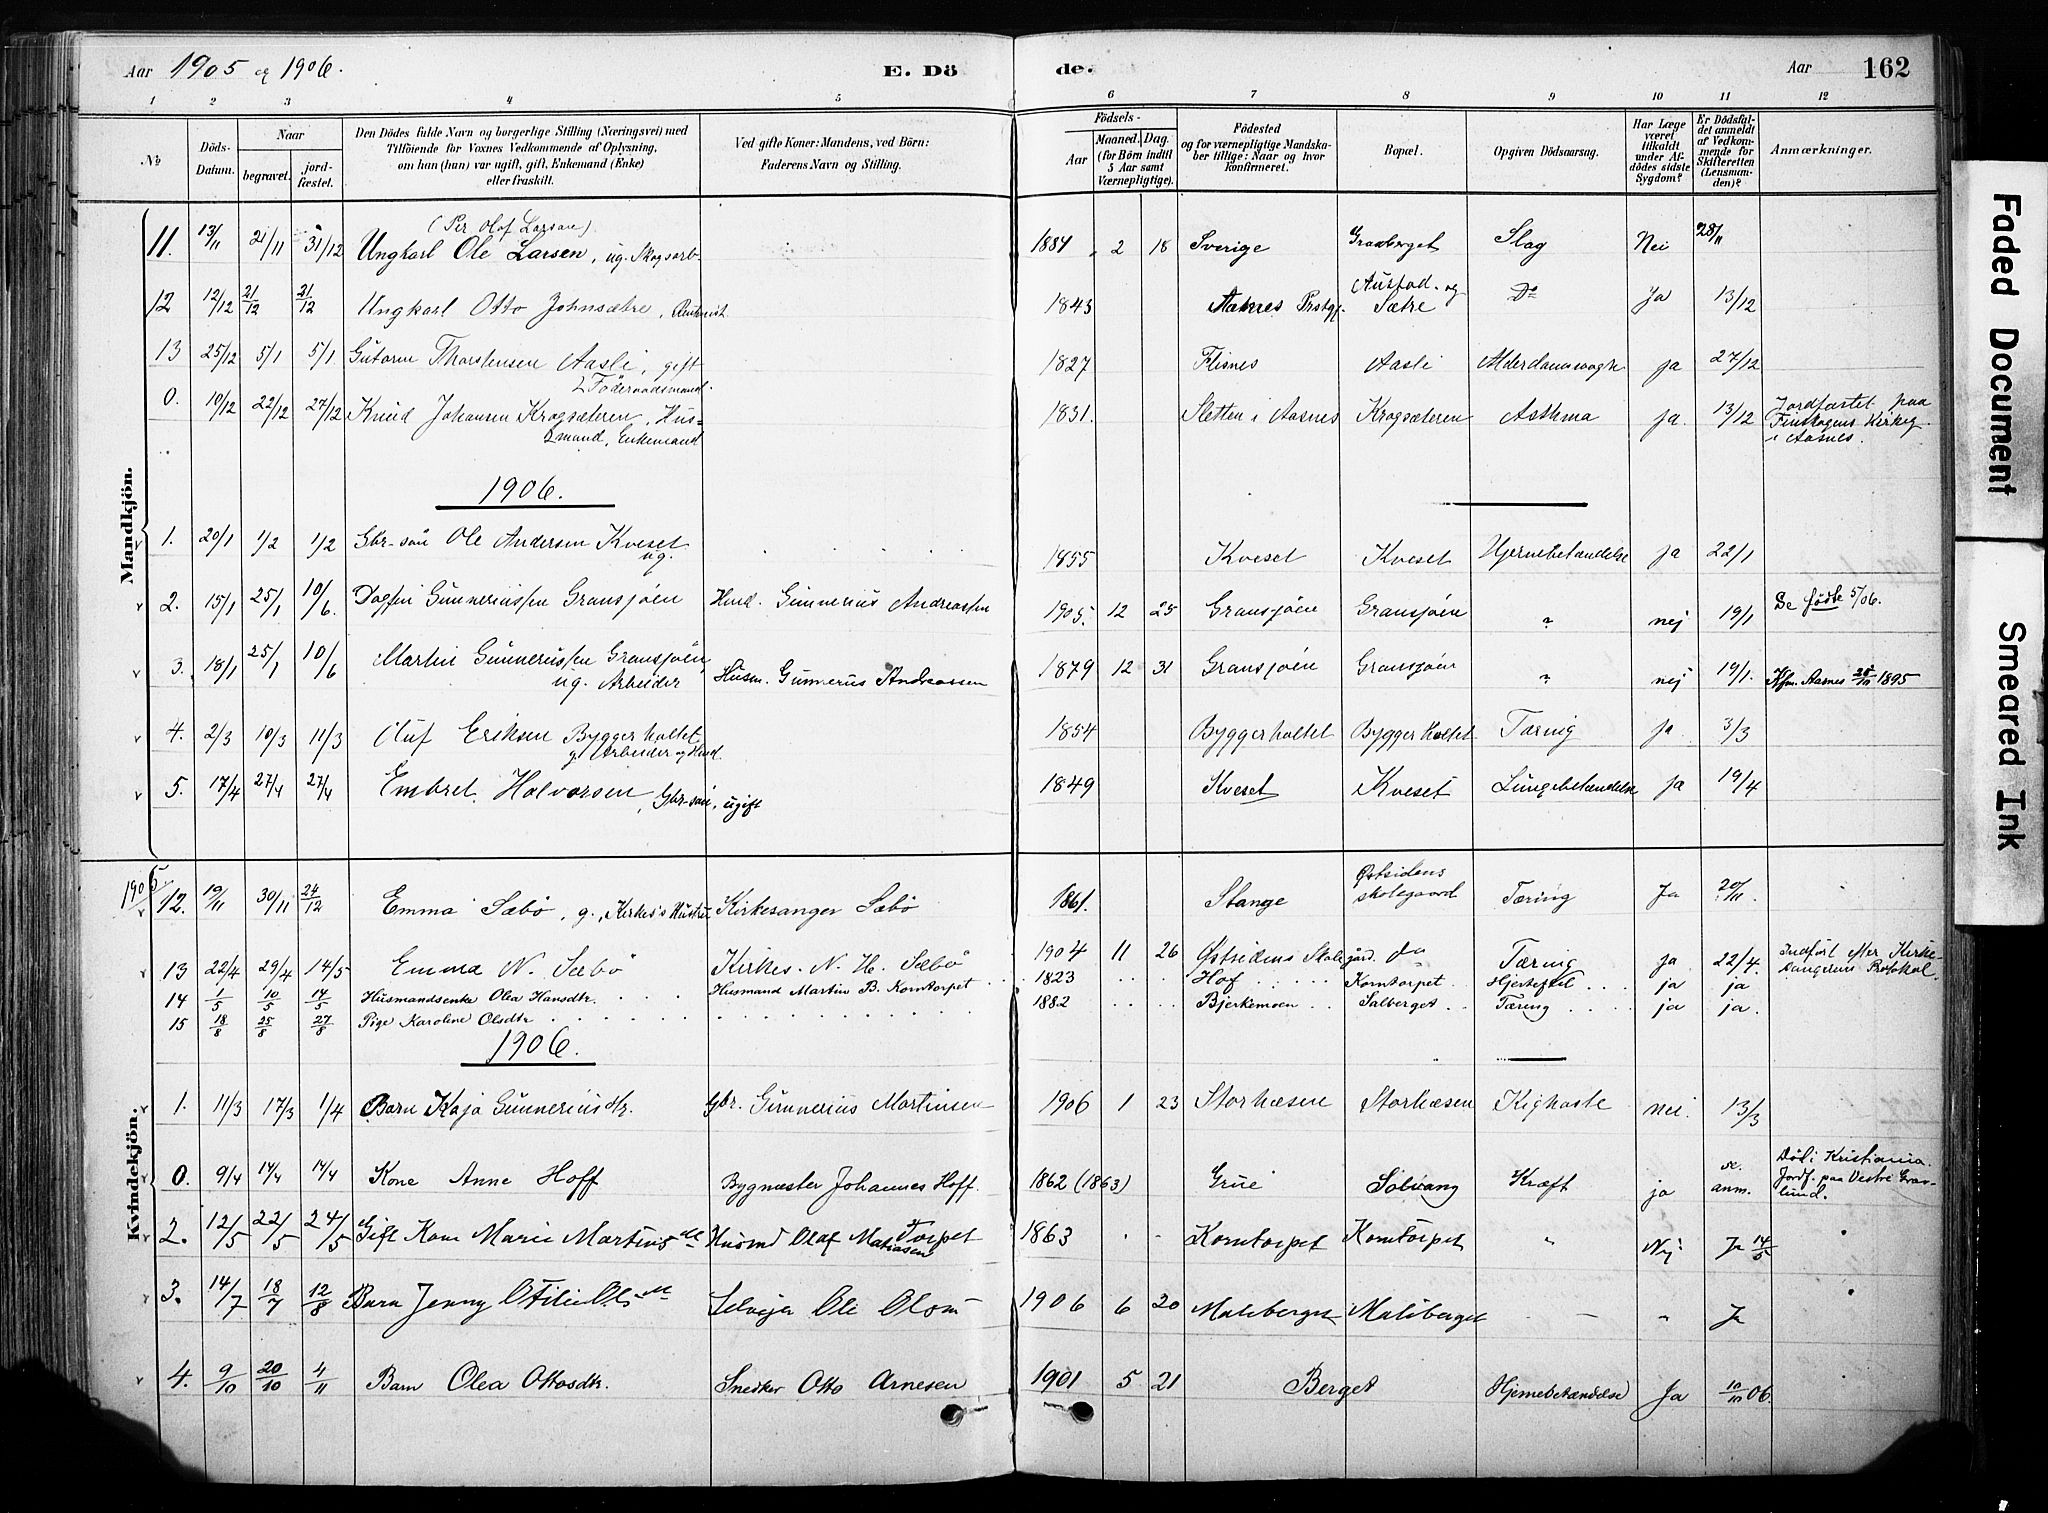 Aar 1905 og 1906. E. Dö de. Aar 162
1 2 3 4 5 6 7 8 9 10 11 12
No
Döds-Datum.
Naar
begravet.
jord-fæstet.
Den Dödes fulde Navn og borgerlige Stilling (Næringsvei) med
Tilföiende for Voxnes Vedkommende af Oplysning,
om han (hun) var ugift, gift, Enkemand (Enke)
eller fraskilt.
Ved gifte Koner: Mandens, ved Börn:
Faderens Navn og Stilling.
Födsels-
Aar
Maaned. Dag.
(for Börn indtil
5 Aar samt
Værnepligtige).
Födested
og for værnepligtige Mandska-
ber tillige: Naar og hvor
Konfirmeret.
Bopæl.
Opgiven Dödsaarsag.
Har Læge
været
tilkaldt
under Af-
dödes sidste
Sygdom?
Er Dödsfal-
det anmeldt
af Vedkom-
mende for
Skifteretten
(Lensman-
den)?
Anmærkninger.
Mandkjön.
(Per Olof Larson)
11. 13/11 21/11 31/12 Ungkarl Ole Larsen, ug. Skogsarb. 1884 2 18 Sverige Graaberget Slag Nei 28/11
12 12/12 21/12 21/12 Ungkarl Otto Johnsæbre, 1843 Aasnes Prstgj. Sætre Do Ja 13/12
13 25/12 5/1 5/1 Gutorm Thorstensen Aasli, gift Föderaadsmand. 1827 Flisnes Aasli Alderdomssvagh ja 27/12
0. 10/12 22/12 27/12 Knud Johansen Krogsæteren, Hus-
mand, Enkemand 1831. Sletten i Aasnes Krogsæteren Asthma ja. 13/12 Jordfæstet paa
Finskogens Kirkeg.
i Aasnes.
1906.
1. 20/1 1/2 1/2 Gbr-sön Ole Andersen Kveset
ug. 1855 Kveset Kveset Hjernebetændelse ja 22/1
2. 15/1 25/1 10/6. Dagfin Gunneriussen Gransjöen Husd. Gunnerius Andreassen 1905. 12 25 Gransjöen Gransjöen " nej 19/1 Se födte 5/06.
3. 18/1 25/1 10/6 Martin Gunneriussen Gransjöen,
ug. Arbeider Husm. Gunnerus Andreassen 1879 12 31 Gransjöen Gransjöen " nej 19/1. Kfm. Aasnes 1895
4. 2/3 10/3 11/3 Oluf Eriksen Byggerholtet
g. Arbeider og Husd. 1854 Byggerholtet Byggerholtet Tæring ja. 3/3
5. 17/4 27/4 27/4 Embret Halvorsen, Gbr-sön, ugift 1849 Kveset Kveset Lungebetændelse ja 19/4
Kvindekjön.
1905.
12. 19/11 30/11 24/12 Emma Sæbö, g., Kirkes's Hustru Kirkesanger Sæbö 1861. Stange Östsidens
skolegaard Tæring Ja 20/11
13 22/4 29/4 14/5 Emma N. Sæbö Kirkes. N. H. Sæbö 1904 11 26 Östsidens Skolegård. do Tæring ja 22/4. Indfört efter Kirke-
sangerens Protokol.
14 1/5 10/5 14/5 Husmandsenke Olea Hansdtr. Husmand Martin B. Korntorpet 1823 Hof Korntorpet Hjertefeil ja ja
15 18/8 25/8 27/8 Pige Karoline Olsdtr 1882 Bjerkemoen Salberget Tæring ja ja.
1906.
1. 11/3 17/3 1/4 Barn Kaja Gunneriusdtr. Gbr. Gunnerius Martinsen 1906 1 23 Storhæsen Storhæsen Kighoste nei. 13/3
0. 9/4 14/4 14/4 Kone Anne Hoff Bygmester Johannes Hoff. 1862 (1863) Grue Solvang Kræft ja anm. Död i Kristiania.
Jordf. paa Vestre Grav-
lund.
2. 12/5 22/5 24/5 Gift Kone Marie Martinsdtr Husmd Olaf Matiasen Torpet 1863 Korntorpet Korntorpet " Nej Ja 14/5
3. 14/7 18/7 12/8 Barn Jenny Otilie Olsdtr Selvejer Ole Olsen 1906 6 20 Maliberget Maliberget - " Ja
4. 9/10 20/10 4/11 Barn Olea Ottosdtr. Snedker Otto Arnesen 1901 5 21 Berget Hjernebetændelse Ja 10/10 06.
Faded Document
Smeared Ink